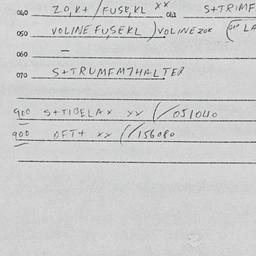 040 ZO,K+ /FUSE,KL xx 041 S+TRIMF
050 VOLINE FUSEKL ) VOLINEZOK
060 —
070 S+TRUMFM7HALTER
900 S+TIGELAX xx (/051040
900 OFT+ xx (/156080